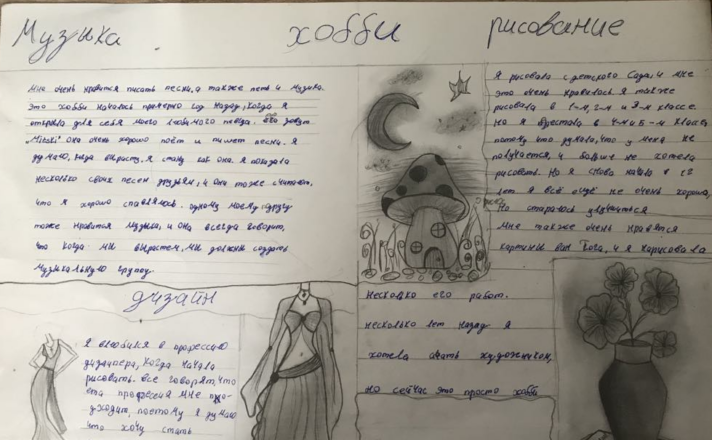 Музыка хобби рисование
Мне очень нравится писать песни, а также петь и музыка.
Это хобби началось примерно год назад, когда я
открыла для себя моего любимого певца, его зовут
"Mitski" она очень хорошо поёт и пишет песни. Я
думаю, когда вырасту, я стану как она. Я показала
несколько своих песен друзьям, и они тоже считают,
что я хорошо справляюсь. одному моему другу
тоже нравится музыка, и она всегда говорит,
что когда мы вырастем, мы должны создать
музыкальную группу.
Я рисовала с детского сада, и мне
это очень нравилось я также
рисовала в 1-м, 2-м и 3-м классе.
Но я перестала в 4-м и 5-м классе,
потому что думала, что у меня не
получается, и больше не хотела
рисовать. Но я снова начала в
лет я всё ещё не очень хороша,
Но стараюсь улучшиться
мне также очень нравятся
картины Ван Гога, и я нарисовала
несколько его работ.
несколько лет назад я
хотела стать художником,
но сейчас это просто хобби
дизайн
Я влюбился в профессию
дизайнера, когда начала
рисовать. все говорят, что
эта профессия мне по-
дходит, поэтому я думаю
что хочу стать